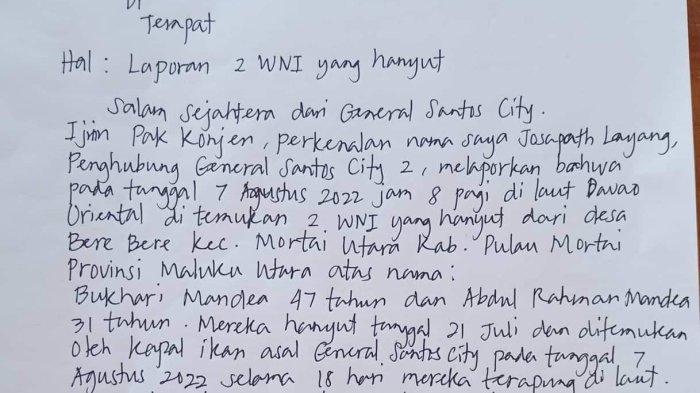 Di
Tempat
Hal : Laporan 2 WNI yang hanyut
Salam Sejahtera dari General Santos City.
Ijin Pak Konjen, perkenalan nama saya Josapath Layang,
Penghubung General Santos City 2, melaporkan bahwa
pada tanggal 7 Agustus 2022 jam 8 pagi di laut Davao
Oriental di temukan 2 WNI yang hanyut dari desa
Bere Bere Kec. Mortai Utara Kab. Pulau Mortai
Provinsi Maluku Utara atas nama :
Bukhari Mandea 47 tahun dan Abdul Rahman Mandea
31 tahun. Mereka hanyut tanggal 21 Juli dan ditemukan
Oleh Kapal ikan asal General Santos City pada tanggal 7
Agustus 2022 selama 18 hari mereka terapung di laut.